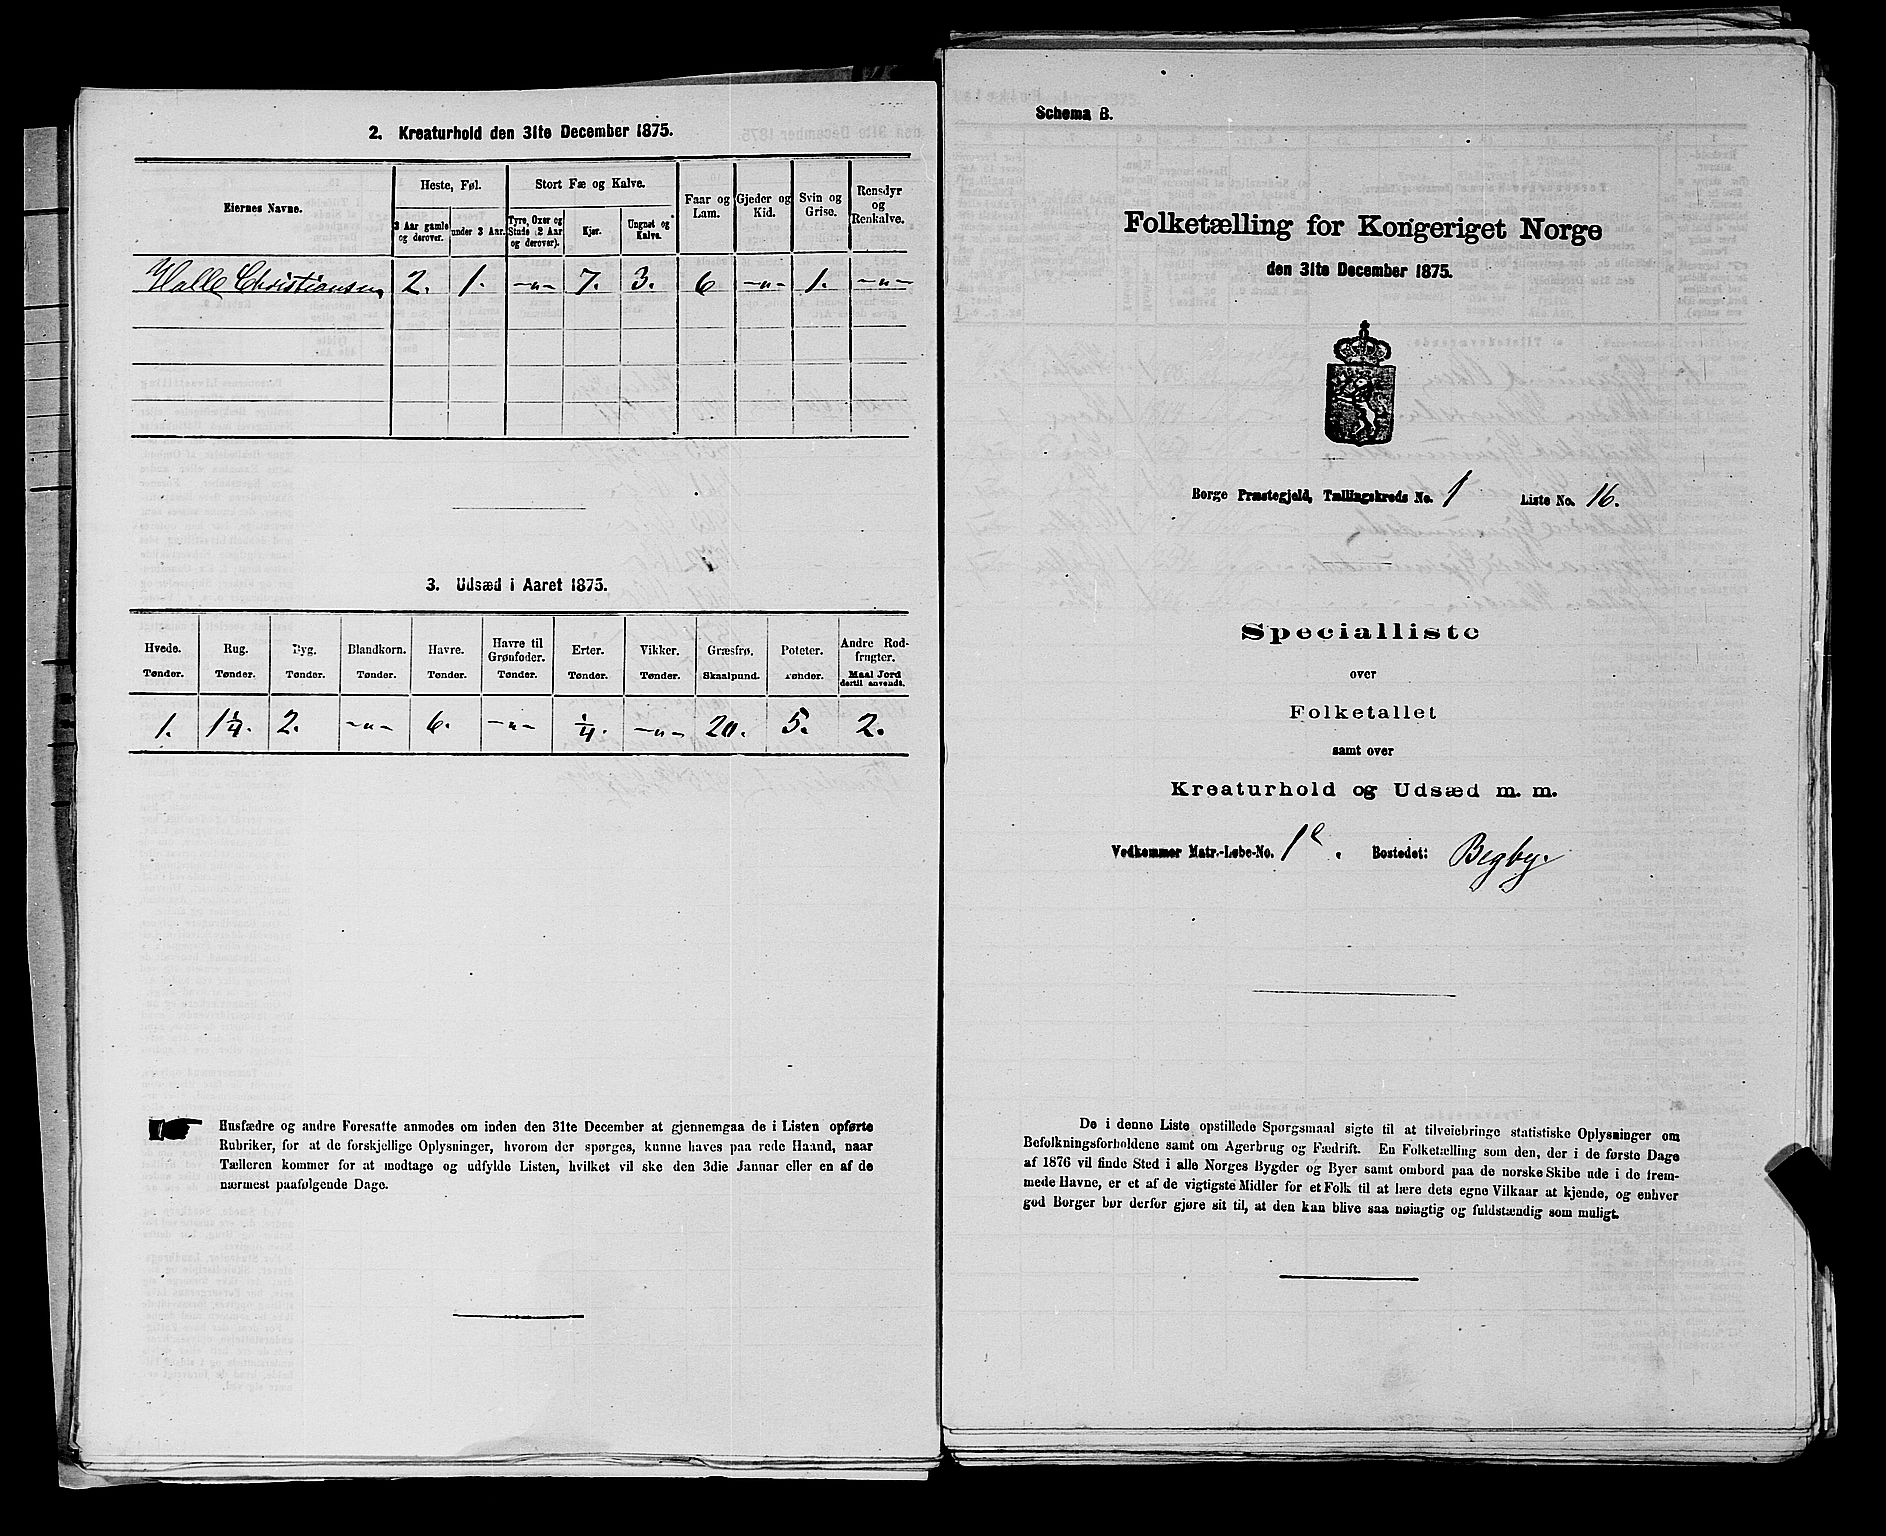 2. Kreaturhold den 31te December 1875.
Eiernes Navne.
Heste, Føl.
Stort Fæ og Kalve.
Faar og Lam.
Gjeder og Kid.
Svin og Grise.
Rensdyr og Renkalve.
3 Aar gamle og derover.
under 3 Aar.
Tyre, Oxer og Stude (2 Aar og derover).
Kjør.
Ungnøt og Kalve.
Halle Christiansen 2. 1. -"- 7. 3. 6 -"- 1. -"-
3. Udsæd i Aaret 1875.
Hvede. Rug. Byg. Blandkorn. Havre. Havre til Grønfoder. Erter. Vikker. Græsfrø. Poteter. Andre Rodfrugter.
Tønder. Tønder. Tønder. Tønder. Tønder. Tønder. Tønder. Tønder. Skaalpund. Tønder. Maal Jord dertil anvendt.
1. 1¼. 2. -"- 6. -"- ¼. -"- 20. 5. 2.
Husfædre og andre Foresatte anmodes om inden den 31te December at gjennemgaa de i Listen opførte
Rubriker, for at de forskjellige Oplysninger, hvorom der spørges, kunne haves paa rede Haand, naar
Tælleren kommer for at modtage og udfylde Listen, hvilket vil ske den 3die Januar eller en af de
nærmest paafølgende Dage.
Schema B.
Folketælling for Kongeriget Norge
den 31te December 1875.
Borge Præstegjeld, Tællingskreds No. 1 Liste No. 16.
Specialliste
over
Folketallet
samt over
Kreaturhold og Udsæd m. m.
Vedkommer Matr.-Løbe-No. 1e. Bostedet: Begby.
De i denne Liste opstillede Spørgsmaal sigte til at tilveiebringe statistiske Oplysninger om
Befolkningsforholdene samt om Agerbrug og Fædrift. En Folketælling som den, der i de første Dage
af 1876 vil finde Sted i alle Norges Bygder og Byer samt ombord paa de norske Skibe ude i de frem-
mede Havne, er et af de vigtigste Midler for et Folk til at lære dets egne Vilkaar at kjende, og enhver
god Borger bør derfor gjøre sit til, at den kan blive saa nøiagtig og fuldstændig som muligt.